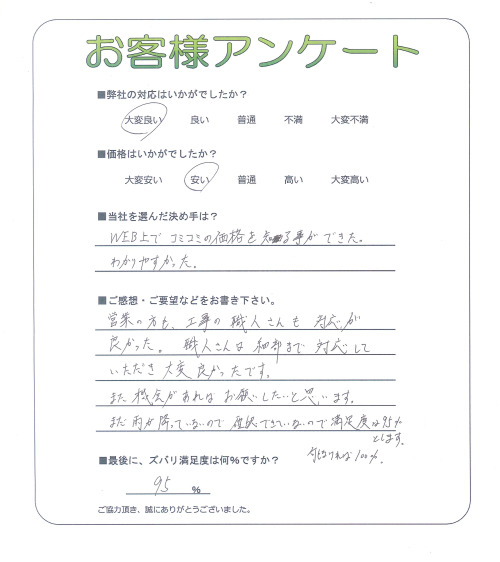 お客様アンケート
■弊社の対応はいかがでしたか？
大変良い 良い 普通 不満 大変不満
■価格はいかがでしたか？
大変安い 安い 普通 高い 大変高い
■当社を選んだ決め手は？
WEB上でコミコミの価格を知る事ができた。
わかりやすかった。
■ご感想・ご要望などをお書き下さい。
営業の方も、工事の職人さんも対応が
良かった。職人さんは細部まで対応して
いただき大変良かったです。
また機会があればお願いしたいと思います。
まだ雨が降っていないので確認できていないので満足度は95%
とします。
なければ100%.
■最後に、ズバリ満足度は何%ですか？
95 %
ご協力頂き、誠にありがとうございました。